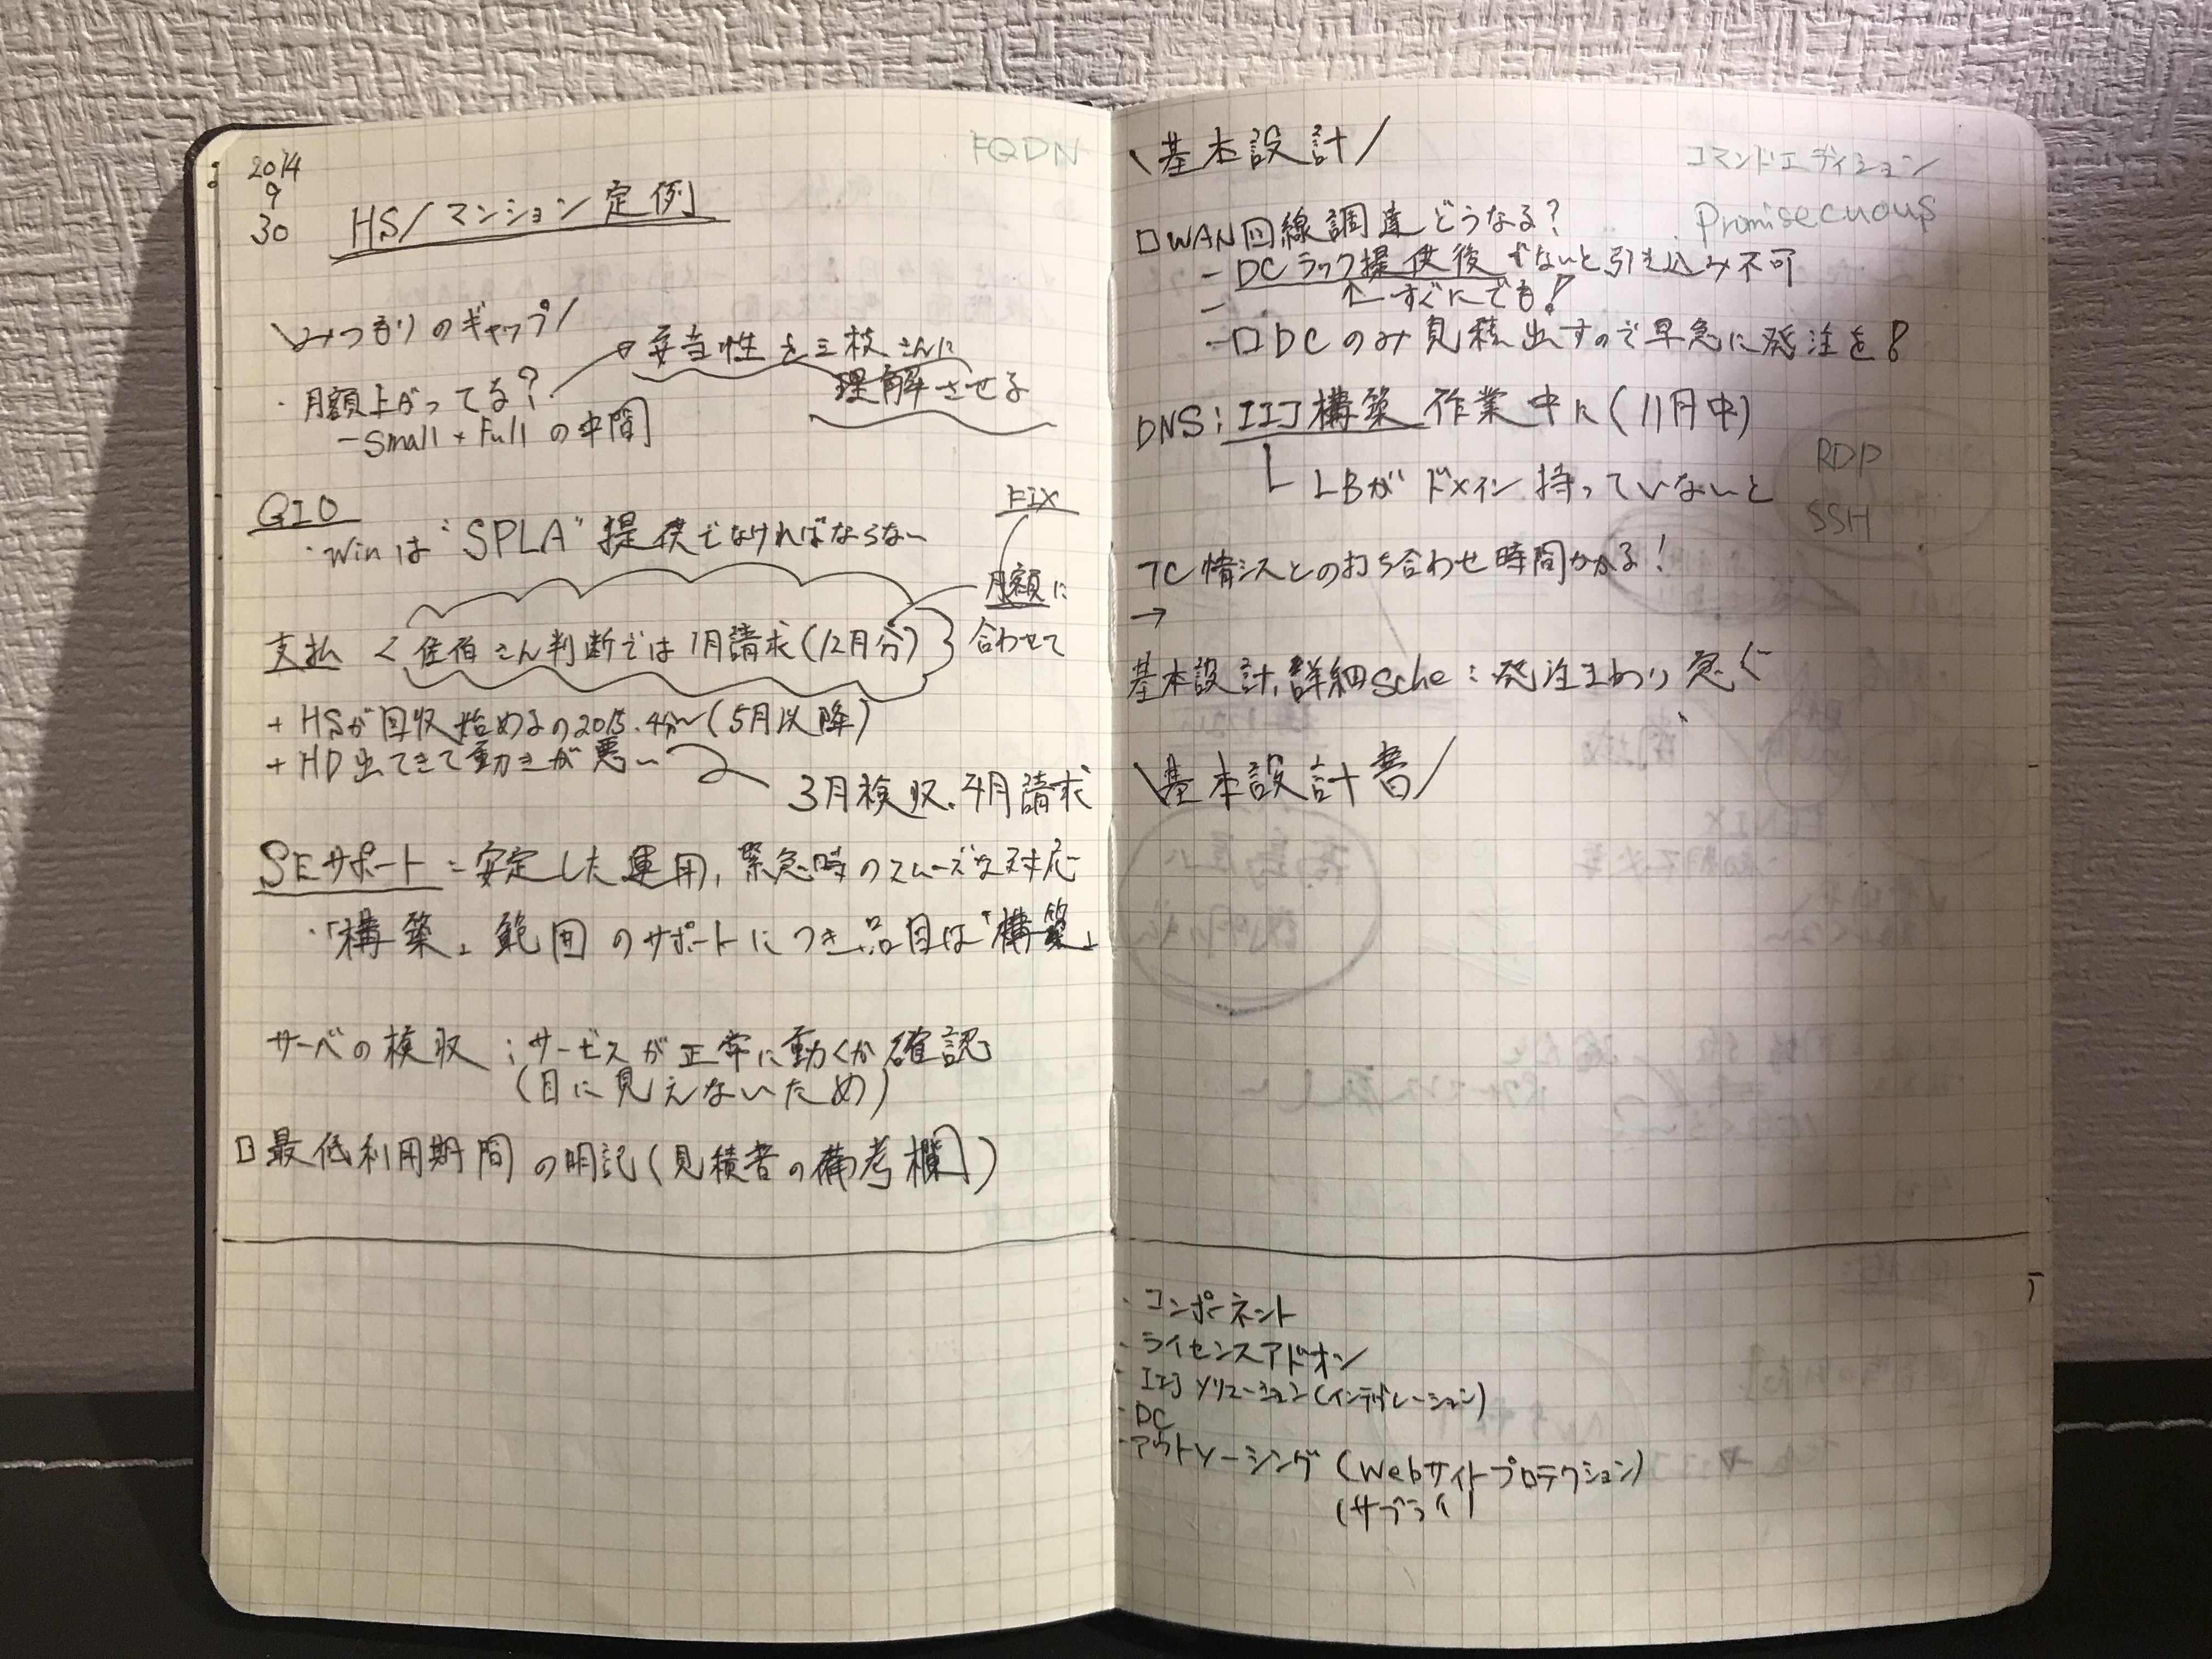 2014
9
30
FQDN
HS/マンション定例
\みつもりのギャップ/
・月額上がってる?
→妥当性を三枝さんに
理解させる
-Small + Fullの中間
GIO
・Winは"SPLA"提供でなければならない
FIX
月額に
合わせて
支払 < 佐伯さん判断では1月請求(12月分)
+ HSが回収始めるの2015.4分〜(5月以降)
+ HD出てきて動きが悪い
3月検収、4月請求
SEサポート=安定した運用, 緊急時のスムーズな対応
・「構築」範囲のサポートにつき品目は「構築」
サーベの検収:サービスが正常に動くか確認
(目に見えないため)
□最低利用期間の明記(見積書の備考欄)
\基本設計/
コマンドエディション
Promisecuous
□WAN回線調達どうなる?
-DCラック提供後でないと引き込み不可
- ↑すぐにでも!
-□DCのみ見積出すので早急に発注を!
DNS:IIJ構築作業中に(11月中)
└ LBがドメイン持っていないと
RDP
SSH
TC情シスとの打ち合わせ時間かかる!
→
基本設計,詳細sche:発注まわり急ぐ
\基本設計書/
・コンポーネント
・ライセンスアドオン
・IIJソリューション(インテグレーション)
・DC
・アウトソーシング(Webサイトプロテクション)
(サプライ)